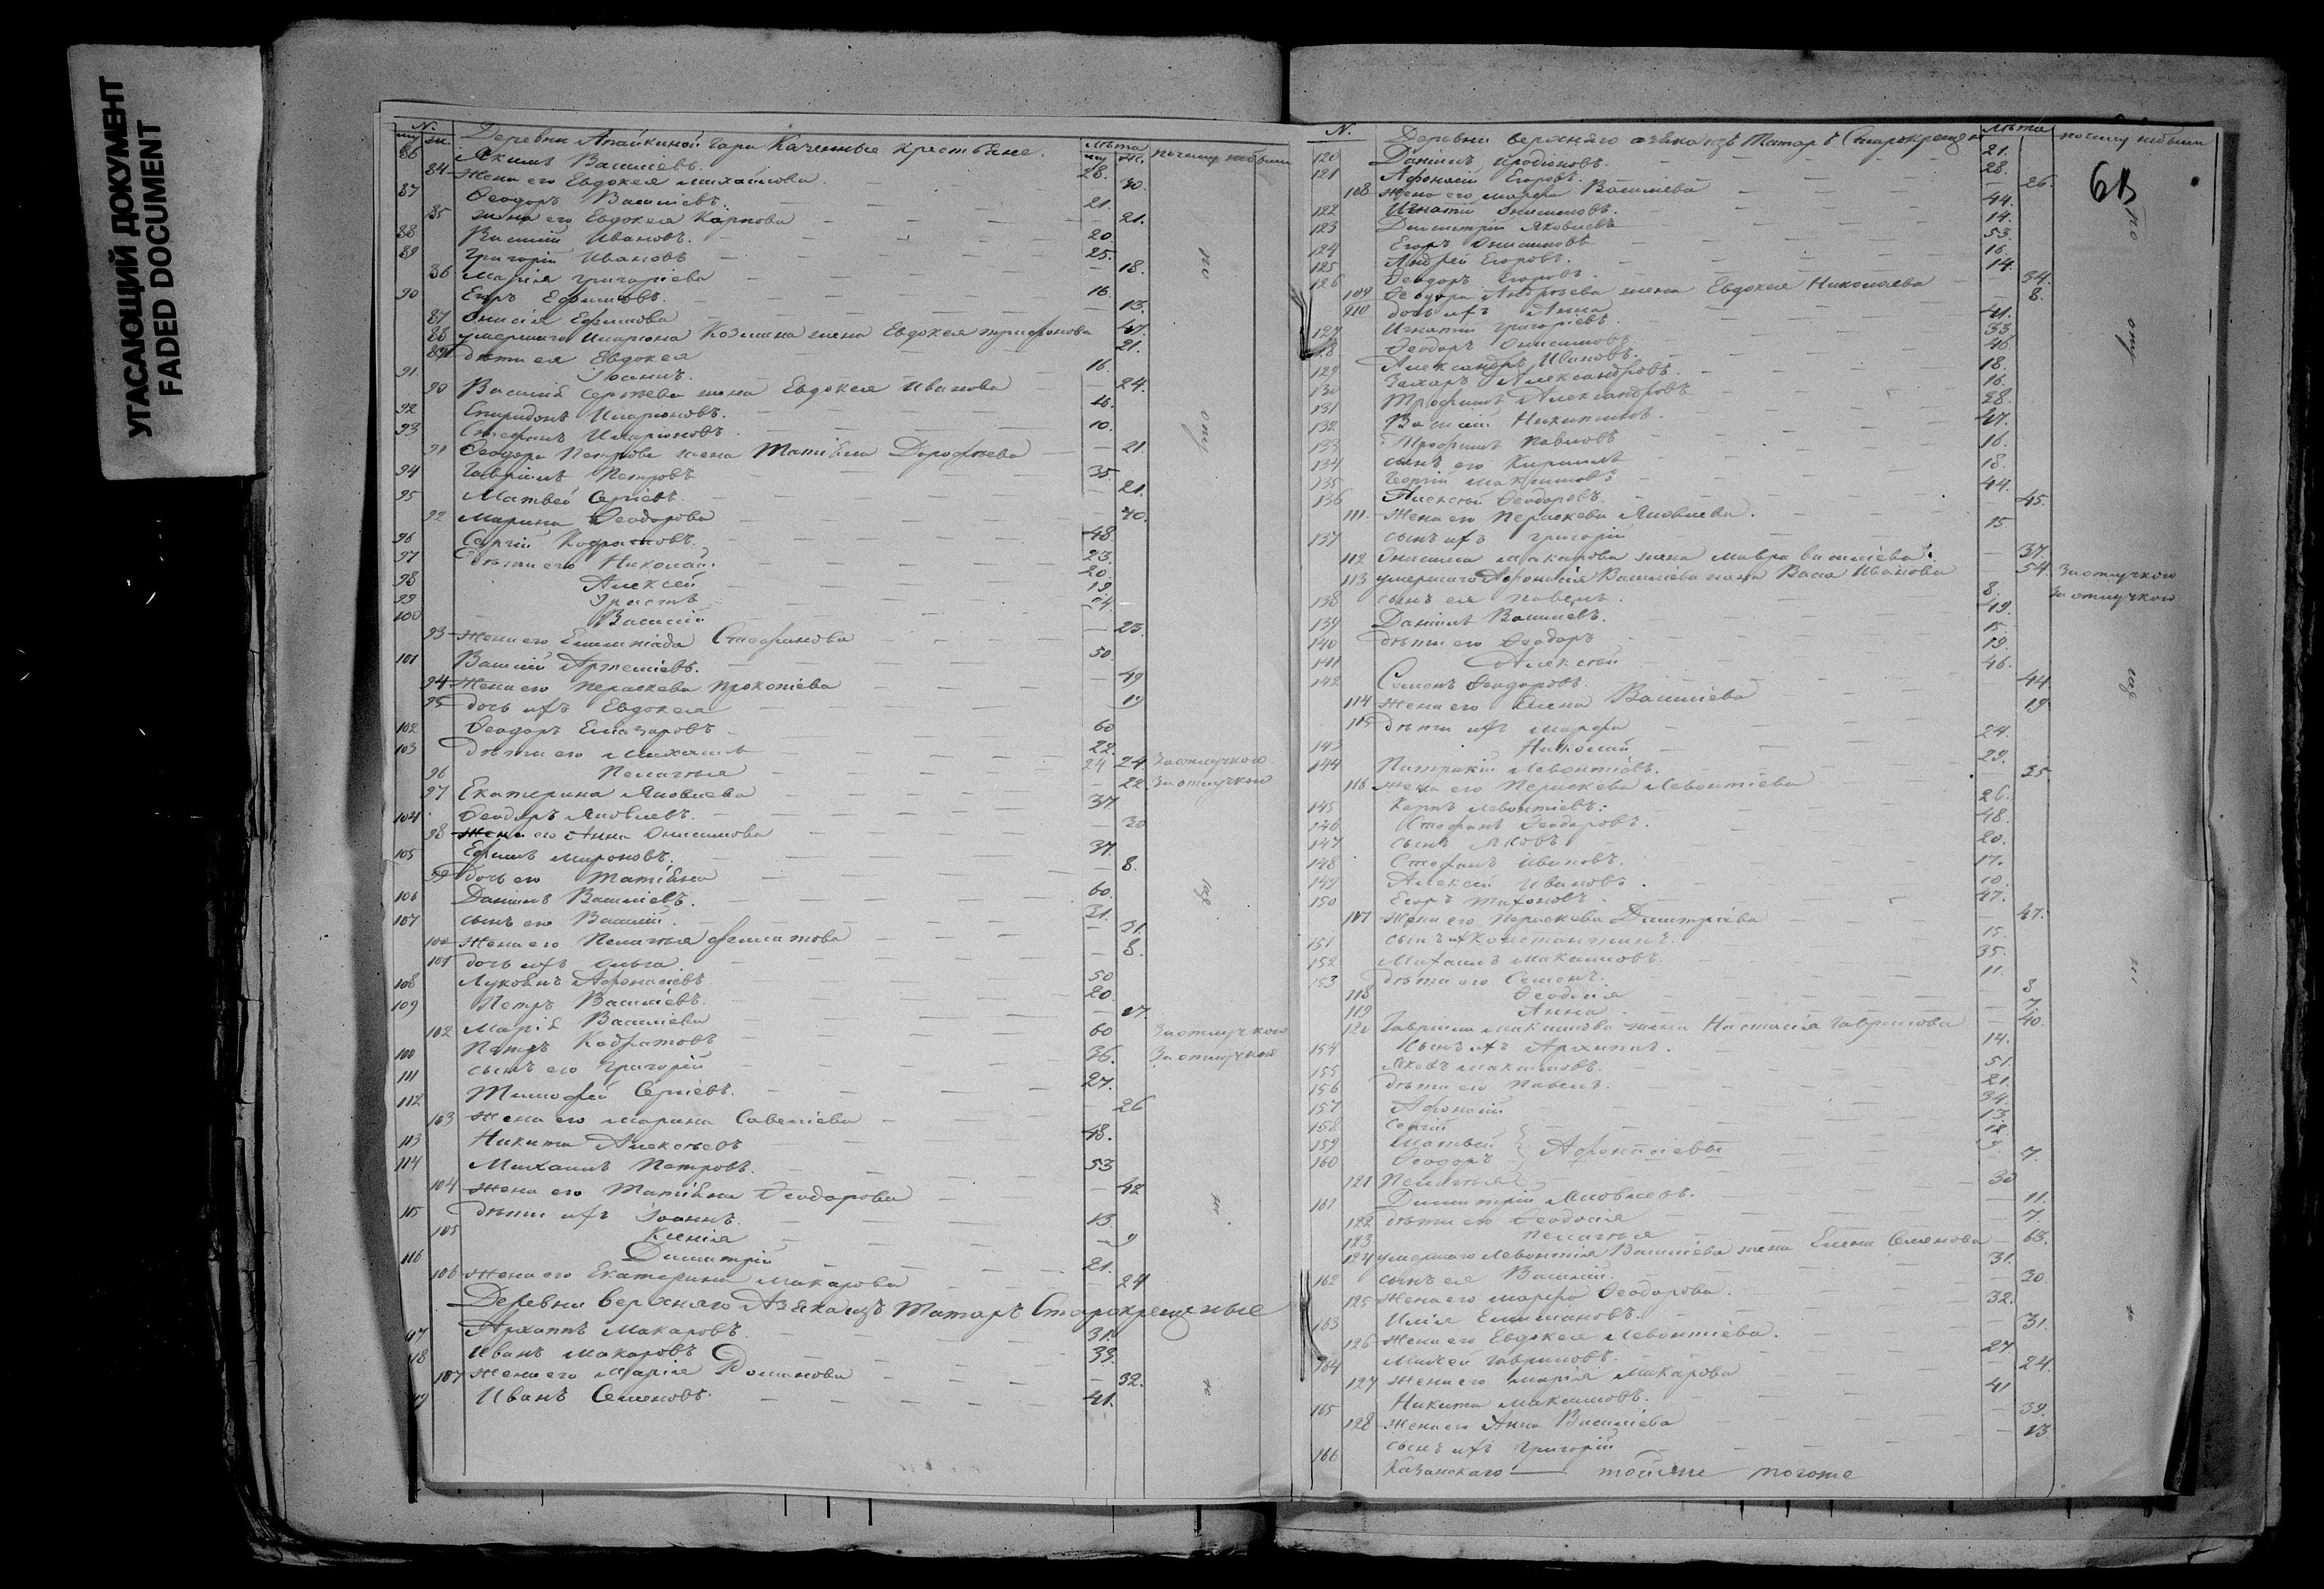 УГАСАЮЩИЙ ДОКУМЕНТ
FADED DOCUMENT
N. Деревни Апайкиной Гари Казенные крестьяне. Лѣта почему небыли
86 Якимъ Васильевъ. 28.
84 Жена его Евдокея Михайлова 30.
87 Ѳеодоръ Васильевъ. 21.
85 жена его Евдокея Карпова 21.
88 Василий Ивановъ. 20.
89 Григорій Ивановъ 25.
86 Марія Григоріева 18.
90 Егоръ Ефимовъ. 16.
87 Онисія Ефимова 13.
88 умершаго Илариона Козмина жена Евдокея Трифонова 47.
89 дѣти ея Евдокея 21.
91 Іоаннъ. 16.
90 Василія Сергѣева жена Евдокея Иванова 24.
92 Спиридонъ Иларионовъ. 16.
93 Стефанъ Иларионовъ 10.
91 Ѳеодора Петрова жена Татіяна Дорофѣева 21
94 Гавріилъ Петровъ 35.
95 Матвей Сергіевъ. 21.
92 Марина Ѳеодорова 40.
96 Сергій Кодратовъ. 48
97 дѣти его Николай. 23.
98 Алексей 20.
99 Эрастъ 19.
100 Василій 14.
93 Жена его Емилиада Стефанова 25.
101 Василій Артеміевъ. 50.
94 Жена его Параскева Прокопіева 49
95 дочь ихъ Евдокея 19
102 Ѳеодоръ Елизаровъ 60
103 дѣти его Михаилъ 22.
96 Пелагея 24 24 За отлучкою
97 Екатерина Яковлева 22 За отлучкою
104 Ѳеодоръ Яковлевъ. 37
98 Жена его Анна Онисимова 30
105 Ефимъ Мироновъ. 37.
99 дочь его Татіяна 8.
106 Даниилъ Васильевъ. 60.
107 сынъ его Василій 31.
100 Жена его Пелагея Филатова 31.
101 дочь ихъ Ольга 8.
108 Лукоянъ Афонасіевъ 50
109 Петръ Васильевъ. 20.
102 Марія Васильева 27.
Петръ Кодратовъ 60 За отлучкою
сынъ его Григорій 36. За отлучкою
111 Тимофей Сергіевъ. 27.
112
103 Жена его Марина Савеліева 26
113 Никита Алексѣевъ 48.
114 Михаилъ Петровъ. 53
104 Жена его Татіяна Ѳеодорова 42
115 дѣти ихъ Іоаннъ. 13.
105 Ксенія 9
116 Димитрій 21.
106 Жена его Екатерина Макарова 24
Деревни верхняго Азяка изъ Татаръ Старокрещеные
117 Архипъ Макаровъ. 31.
118 Иванъ Макаровъ 33.
107 Жена его Марія Романова 32.
119 Иванъ Семеновъ. 41.
N. Деревни верхняго азяка изъ Татаръ Старокрещен Лѣта почему небыли
6В
120 Даниилъ Иродионовъ. 21.
121 Афонасій Егоровъ. 28.
108 Жена его Марфа Васильева 26.
122 Игнатій Онисимовъ. 44.
123 Димитрій Яковлевъ 14.
124 Егоръ Онисимовъ 53.
125 Андрей Егоровъ. 16.
126 Ѳеодоръ Егоровъ. 14.
109 Ѳеодора Андрѣева жена Евдокея Николаева 34.
110 дочь ихъ Анна 8.
127 Игнатій Григоріевъ. 41.
128 Ѳеодоръ Онисимовъ 33.
129 Александръ Ивановъ. 46.
130 Захаръ Александровъ. 18.
131 Трофимъ Александровъ 16.
132 Василій Никитинъ. 28.
133 Трофимъ Павловъ 47.
134 сынъ его Кирилъ 16.
135 Георгій Максимовъ 18.
136 Алексѣй Ѳеодоровъ. 44.
111 Жена его Параскева Яковлева. 45.
137 сынъ ихъ Григорій 15
112 Онисима Макарова жена Мавра Васильева. 37.
113 умершаго Афонасія Васильева жена Васа Иванова 54. За отлучкою
138 сынъ ея Павелъ. 8. За отлучкою
139 Даниилъ Васильевъ. 49.
140 дѣти его Ѳеодоръ 15.
141 Алексѣй 13.
142 Семенъ Ѳеодоровъ. 46.
114 Жена его Елена Васильева 44.
115 дѣти ихъ Марфа 19.
143 Николай 24.
144 Патрикій Левонтіевъ. 29.
116 Жена его Параскева Левонтіева 35.
145 Карпъ Левонтіевъ. 26.
146 Стефанъ Ѳеодоровъ. 48.
147 сынъ Яковъ 20.
148 Стефанъ Ивановъ. 17.
149 Алексей Ивановъ. 10.
150 Егоръ Тихоновъ. 47.
117 Жена его Параскева Димитріева 47.
151 сынъ ихъ Константинъ. 15.
152 Михаилъ Максимовъ. 35.
153 дѣти его Семенъ. 11.
118 Ѳеодосія 3
119 Анна 7.
120 Гавріила Максимова жена Настасія Гаврилова 40.
154 Сынъ ихъ Архипъ. 14.
155 Яковъ Максимовъ. 51.
156 дѣти его Павелъ. 21.
157 Афонасій 34.
158 Сергій 13.
159 Матвей 12.
160 Ѳеодоръ Афонасіевы 9.
121 Пелагея 7.
161 Димитрій Яковлевъ. 30
122 дѣти его Ѳеодосія 11.
123 Пелагея 7.
124 умершаго Левонтія Васильева жена Елена Семенова 63.
162 сынъ ея Василій. 31.
125 Жена его Марфа Ѳеодорова. 30.
163 Илія Емилиановъ. 32.
126 Жена его Евдокея Левонтіева. 31.
164 Гавриловъ. 27
127 Жена его Марія Макарова 24.
165 Никита Максимовъ. 41
128 Жена его Анна Васильева 39.
166 сынъ ихъ Григорій 13
Казанскаго тойже тогоже